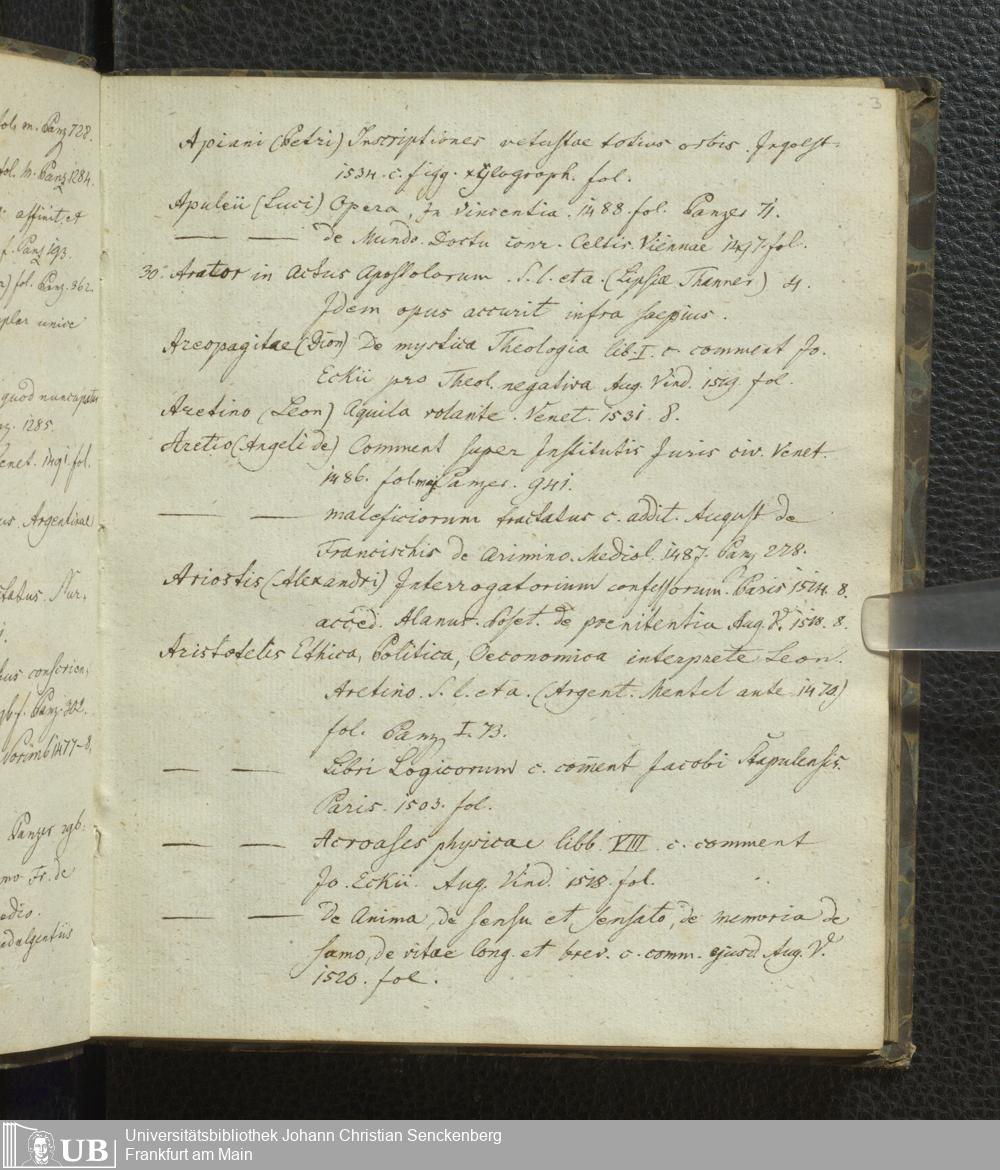 fol. m. Panz 728.
fol. m. Panz 1284.
affinit. et
f. Panz 193.
fol. Panz. 362.
unice
quod nuncupatur
1285.
Venet. 1491. fol.
Argentinae
Nur.
conscrien.
f. Panz. 302.
Norimb 1477-8.
Panzer 296.
Fr. de
edio.
indulgentiis
3
Apiani (Petri) Inscriptiones vetustae totius orbis. Ingolst.
1534. c. figg. xylograph. fol.
Apuleii (Luci) Opera, In Vincentia. 1488. fol. Panzer 71.
— — de Mundo. Doctu conr. Celtis. Viennae 1497. fol.
30. Arator in Actus Apostolorum S. l. et a. (Lipsiae Thanner) 4.
Idem opus accurit infra saepius.
Areopagitae (Dion) De mystica Theologia lib. I. c. comment Jo.
Eckii pro Theol. negativa Aug. Vind. 1519. fol.
Aretino (Leon) Aquila volante. Venet. 1531. 8.
Aretio (Angeli de) Comment super Institutis Juris civ. Venet.
1486. fol maj Panzer. 941.
— — maleficiorum tractatus c. addit. August de
Francischis de Arimino. Mediol. 1487. Panz 228.
Ariostis (Alexandri) Interrogatorium confessorum. Paris 1514. 8.
acced. Alanus. de poenitentia Aug. V. 1518. 8.
Aristotelis Ethica, Politica, Oeconomica interprete Leon.
Aretino. S. l. et a. (Argent. Mentel ante 1470)
fol. Panz I. 73.
— — Libri Logicorum c. com̄ent Jacobi Stapulensis.
Paris. 1503. fol.
— — Acroases physicae libb. VIII. c. comment
Jo. Eckii. Aug. Vind. 1518. fol.
— — De Anima, de sensu et sensato, de memoria de
somo, de vitae long. et brev. c. comm. ejusd. Aug. V.
1520. fol.
UB
Universitätsbibliothek Johann Christian Senckenberg
Frankfurt am Main